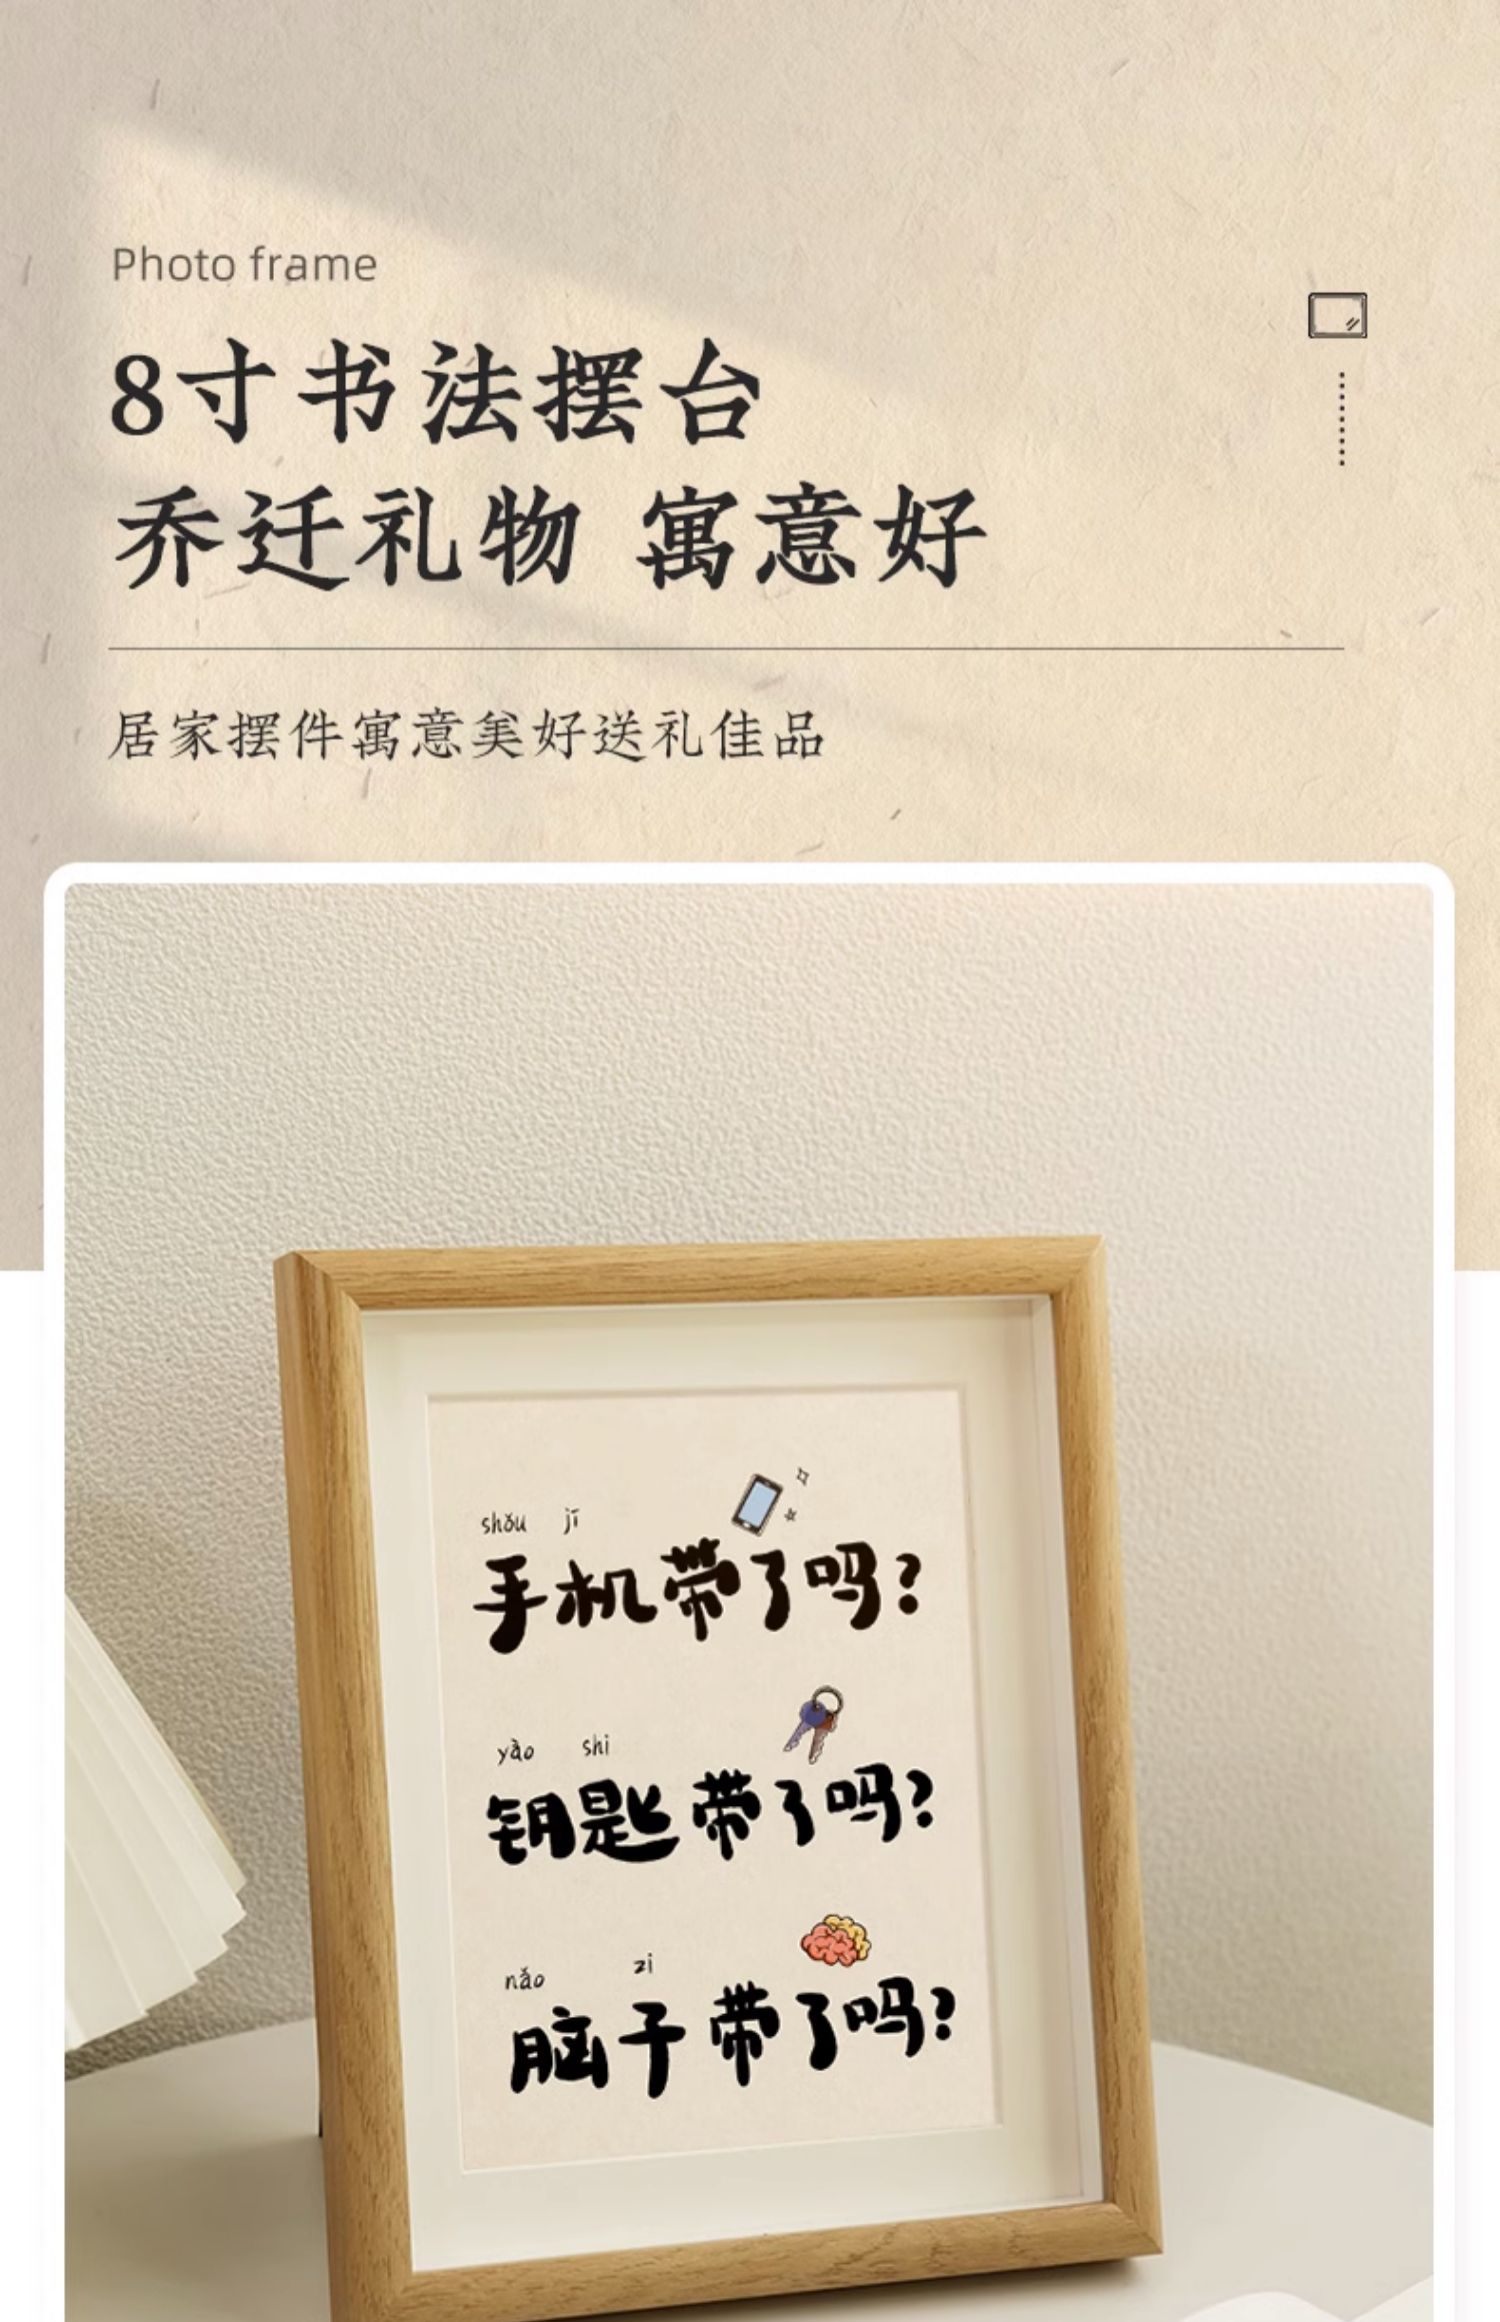 Photo frame
8寸书法摆台
乔迁礼物 寓意好
居家摆件寓意美好送礼佳品
shǒu jī
手机带了吗?
yào shi
钥匙带了吗?
nǎo zi
脑子带了吗?